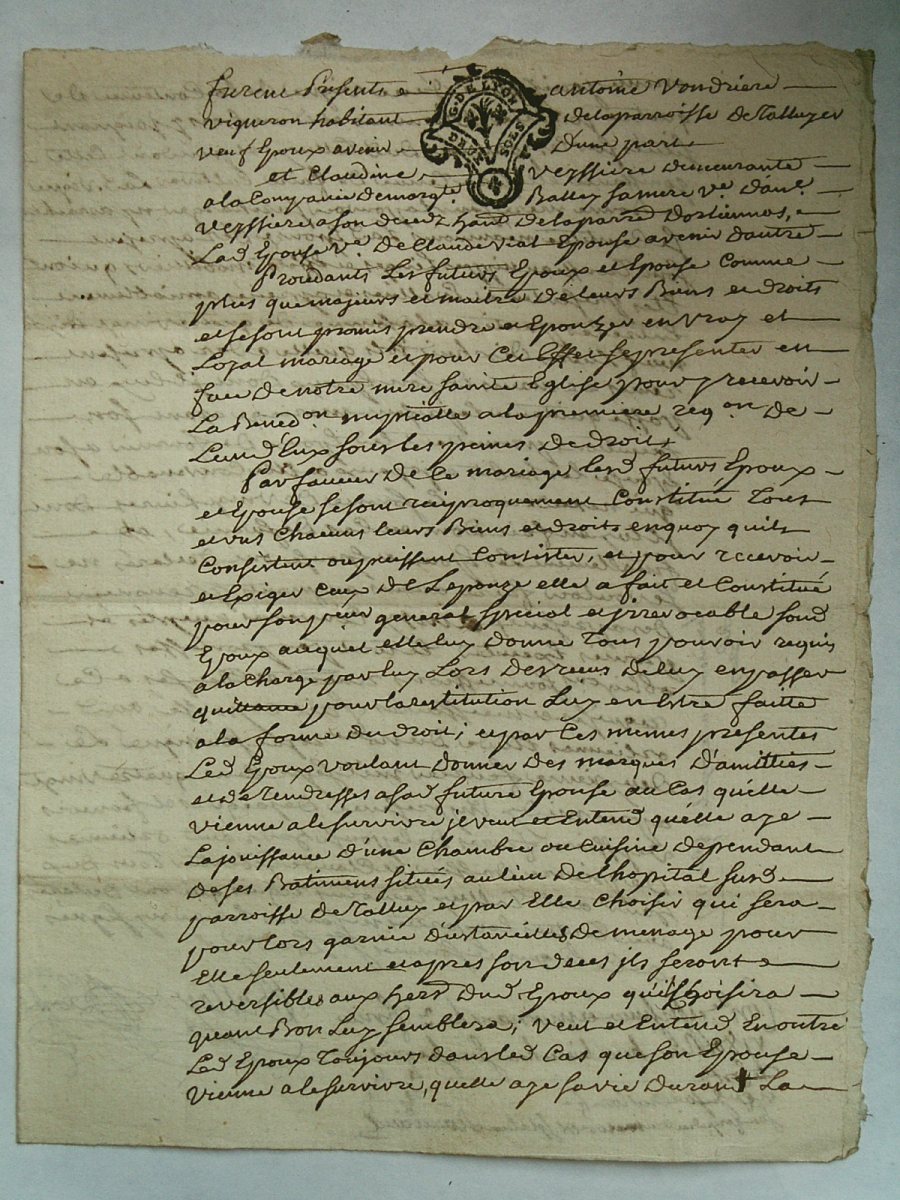 furent Presents antoine Vondriere
vigneron habitant delaparroisse deTalluyer
veuf Epoux avenir d'une part
G. DE LYON
DEUX SOLS
et Claudine veyssiere demeurante
alaCompagnie demargte Balley samere ve d'ane
veyssiere ason decedz hant delaparred
Lad Epouse ve de Claude vial Epouse avenir dautre
Les futurs Epoux et Epouse Comme
plus que majeurs et maitre de leurs Biens et droits
et se sont promis prendre et Epouzer en vray et
Loyal mariage et pour Cet Effet se presenter en
face de notre mere sainte Eglise pour y recevoir
La Bened.on nuptialle ala premiere reqon de
Lund'Eux sous les peines de droit
Par faveur de Ce mariage Lesd futurs Epoux
et Epouse se sont reciproquement Constitué Tous
et uns Chacuns leurs Biens et droits enquoy quils
Consistent ou puissent Consister, et pour recevoir
et Exiger Ceux de L'epouze elle a fait et Constitué
pour son general special et jrrevocable sond
Epoux auquel elle luy donne Tous pouvoir requis
ala Charge par luy Lors desreceus deluy en passer
quittance pour la restitution Luy en Estre faitte
ala forme du droit; et par Ces memes presentes
Led Epoux voulant donner des marques d'amitties
et de Tendresses a sad future Epouse au Cas qu'elle
vienne a le survivre jl veut et Entend qu'elle aye
La jouissance d'une Chambre ou Cuisine dependant
de ses Batimens situés au lieu de Lhopital susd
parroisse de Talluy et par Elle Choisir qui sera
pour lors garnie d'ustancilles de menage pour
Elle seulement et apres son deces jls seront
reversibles aux herd dud Epoux qu'il Choisira
quant Bon Luy semblera; veut et Entend En outre
Led Epoux Toujours dans led Cas que son Epouse
vienne a le survivre, quelle aye sa vie durant La